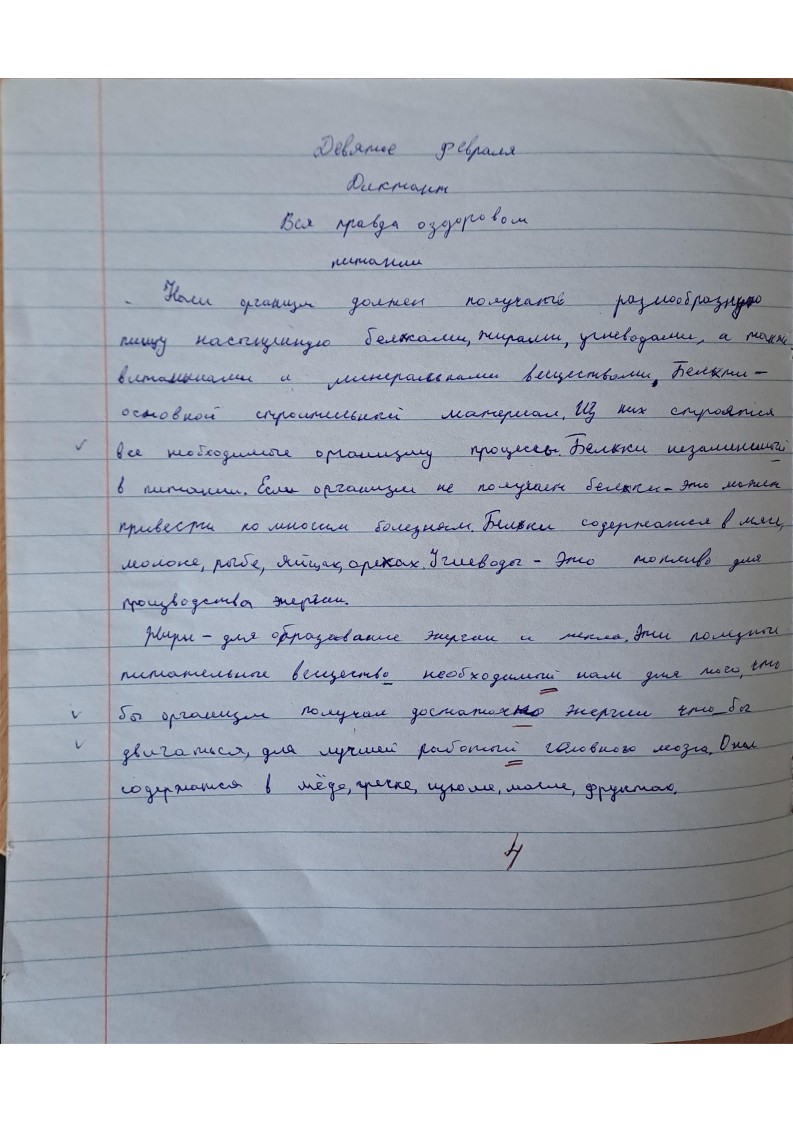 Девятое февраля
Диктант
Вся правда оздоровом
питании
Наш организм должен получать разнообразную
пищу насыщенную белками, жирами, углеводами, а также
витаминами и минеральными веществами. Белкти -
основной строительный материал. Из них строятся
все необходимые организму процессы. Бельки незаменимый
в питании. Если организм не получает бельки - это может
привести ко многим болезням. Бельки содержатся в мясе,
молоке, рыбе, яйцах, орехах. Углеводы - это топливо для
производства энергии.
Жиры - для образование энергии и тепла. Эти полезные
питательные вещество необходимый нам для того, что
бы организм получал достаточно энергии что бы
двигаться, для лучшей работый головного мозга. Они
содержатся в мёде, гречке, изюме, масле, фруктах.
4